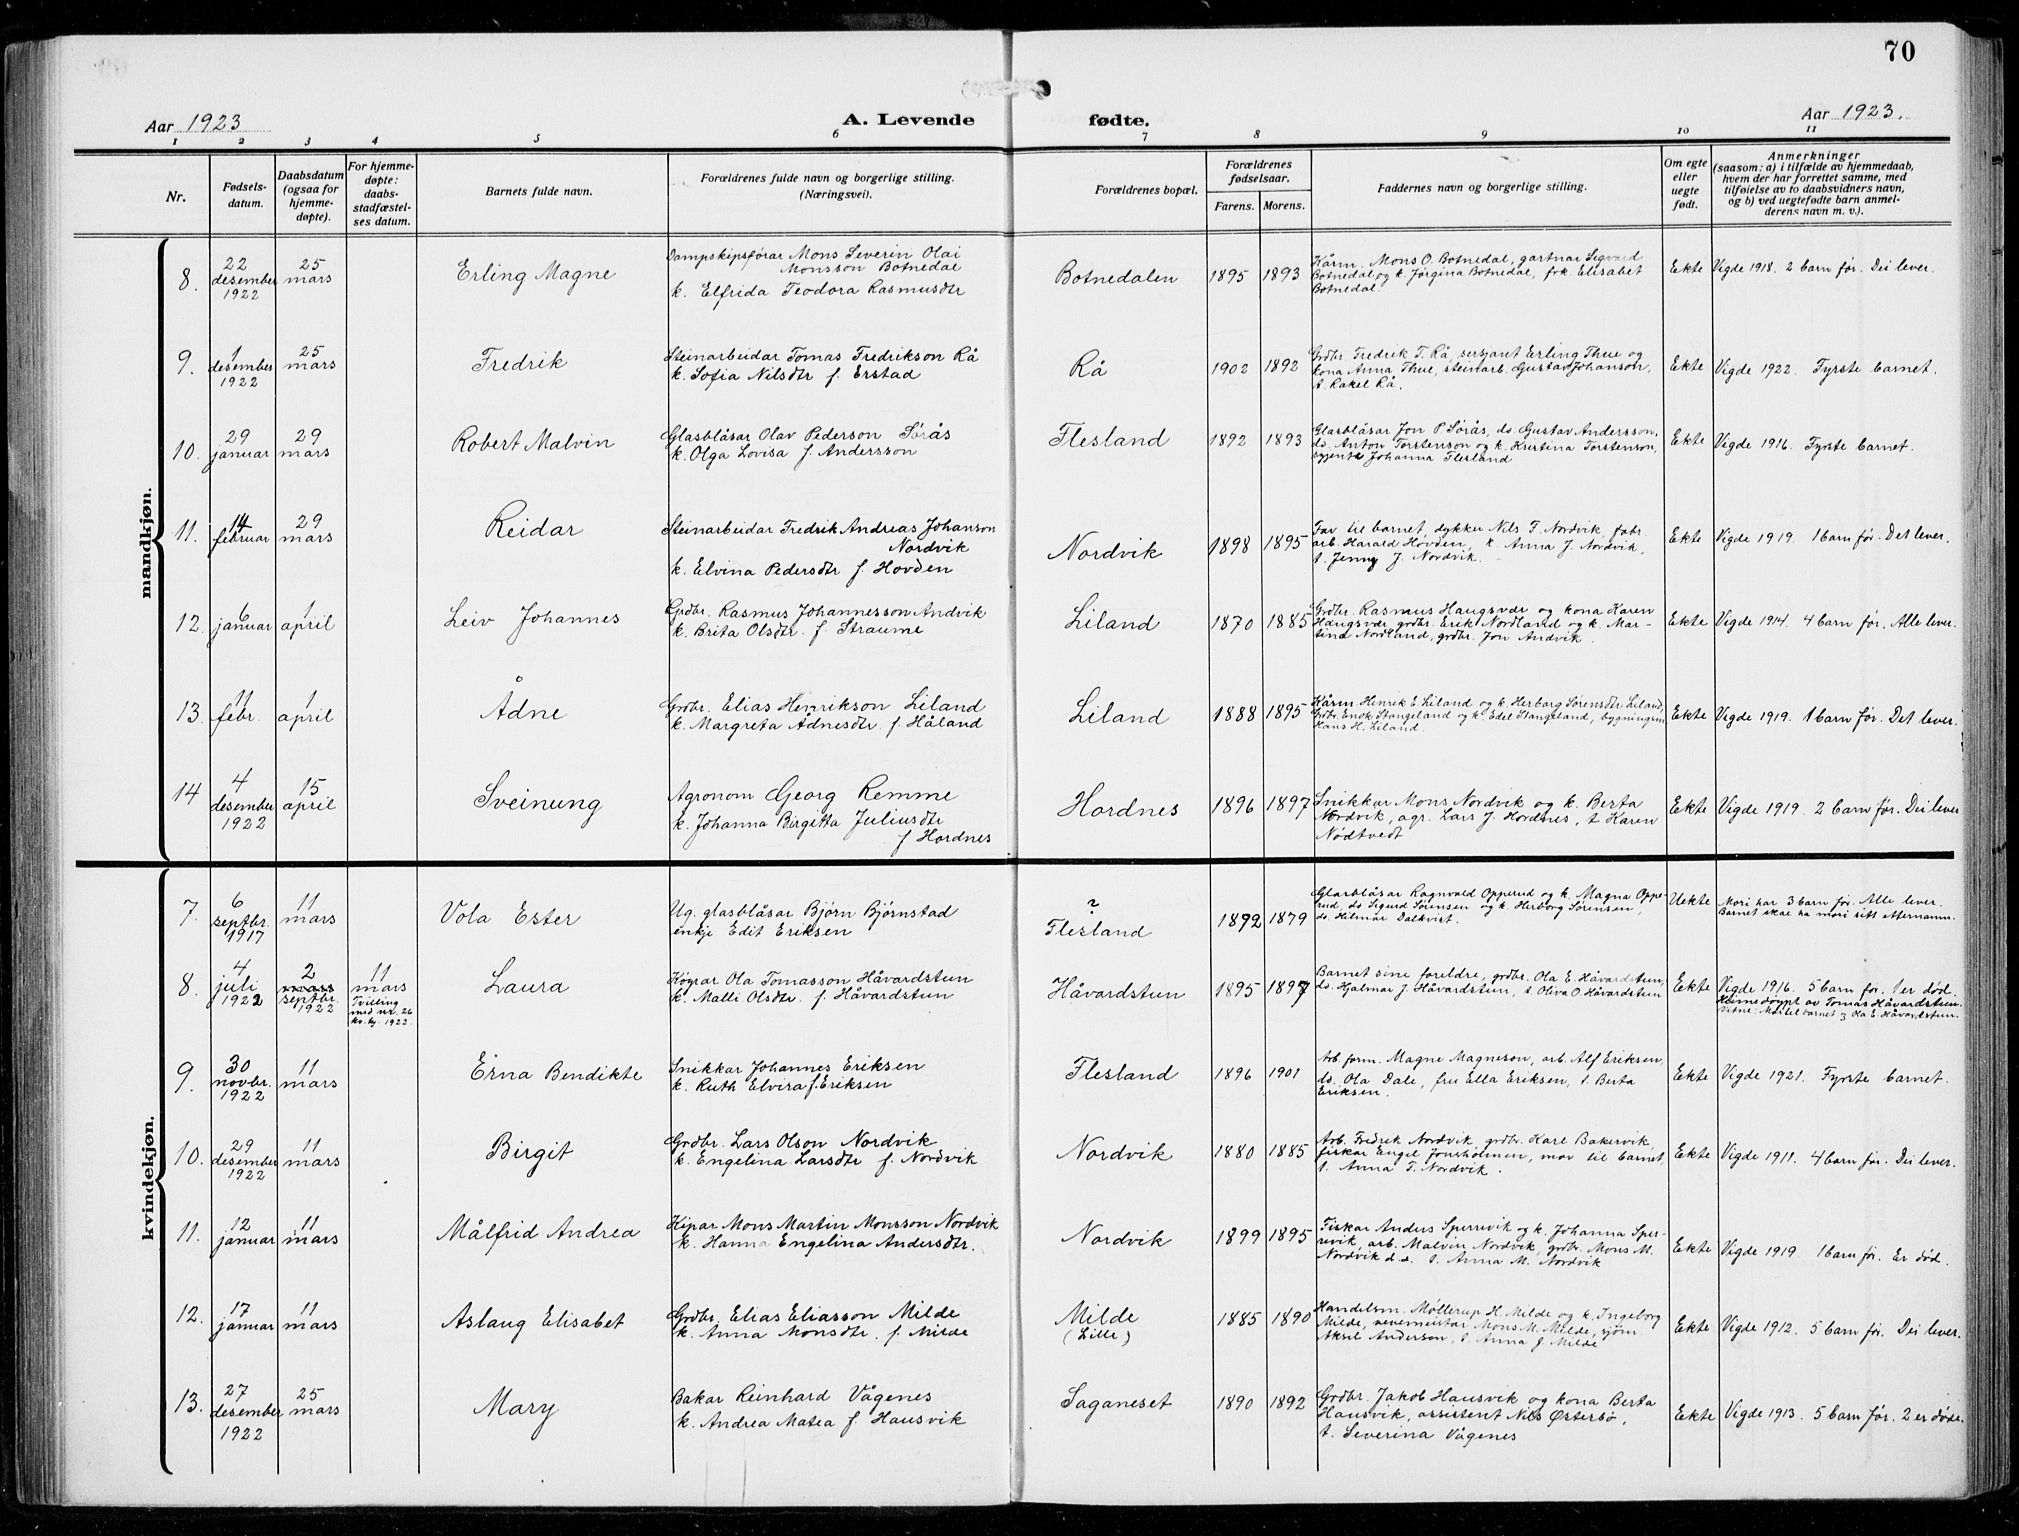 70
Aar 1923
A. Levende fødte.
Aar 1923.
1 2 3 4 5 6 7 8 9 10 11
Nr.
Fødsels-
datum.
Daabsdatum
(ogsaa for
hjemme-
døpte).
For hjemme-
døpte:
daabs-
stadfæstel-
ses datum.
Barnets fulde navn.
Forældrenes fulde navn og borgerlige stilling.
(Næringsvei).
Forældrenes bopæl.
Forældrenes
fødselsaar.
Farens. Morens.
Faddernes navn og borgerlige stilling.
Om egte
eller
uegte
født.
Anmerkninger
(saasom: a) i tilfælde av hjemmedaab,
hvem der har forrettet samme, med
tilføielse av to daabsvidners navn,
og b) ved uegtefødte barn anmel-
derens navn m. v.).
mandkjøn.
8.
22
desember
1922
25
mars
Erling Magne
Dampskipsførar Mons Severin Olai
Monsson Botnedal
k. Elfrida Teodora Rasmusdtr
Botnedalen
1895 1893
Kårm. Mons O. Botnedal, gartnar Sigvard
Botnedal og k. Jørgina Botnedal, frk. Elisabet
Botnedal.
Ekte
Vigde 1918. 2 barn før. Dei lever.
9.
1
desember
1922
25
mars
Fredrik
Steinarbeidar Tomas Fredrikson Rå
k. Sofia Nilsdtr f. Erstad
Rå
1902 1892
Grdbr. Fredrik T. Rå, sersjant Erling Thue og
kona Anna Thue, steinarb. Gustav Johanson,
t. Rakel Rå.
Ekte
Vigde 1922. Fyrste barnet.
10.
29
januar
29
mars
Robert Malvin
Glasblåsar Olav Pederson Sørås
k. Olga Lovisa f. Andersson
Flesland
1892 1893
Glasblåsar Jon P Sørås, ds. Gustav Andersson,
ds. Anton Torstenson og k. Kristina Torstenson,
syjenta Johanna Flesland
Ekte
Vigde 1916. Fyrste barnet.
11.
14
februar
29
mars
Reidar
Steinarbeidar Fredrik Andreas Johanson
Nordvik
k. Elvina Pedersdtr f. Hovden
Nordvik
1898 1895
Far til barnet, dykker Nils F. Nordvik, fabr.
arb. Harald Hovden, k. Anna J. Nordvik,
t. Jenny J. Nordvik.
Ekte
Vigde 1919. 1 barn før. Det lever.
12.
6
januar
1
april
Leiv Johannes
Grdbr. Rasmus Johannesson Andvik
k. Brita Olsdtr. f. Straume
Liland
1870 1885
Grdbr. Rasmus Haugsvær og kona Karen
Haugsvær grdbr. Erik Nordland og k. Mar-
tina Nordland, grdbr. Jon Andvik.
Ekte
Vigde 1914. 4 barn før. Alle lever.
13.
11
febr.
1
april
Ådne
Grdbr. Elias Henrikson Liland
k. Margreta Ådnesdtr. f. Håland
Liland
1888 1895
Kårm. Henrik E. Liland og k. Herborg Sørensdtr Liland,
Grdbr. Enok Stangeland og k. Edel Stangeland, bygningsm.
Hans H. Liland.
Ekte
Vigde 1919. 1 barn før. Det lever.
14
4
desember
1922
15
april
Sveinung
Agronom Georg Remme
k. Johanna Birgitta Juliusdtr
f Hordnes
Hordnes
1896 1897
Snikkar Mons Nordvik og k. Berta
Nordvik, agr. Lars J. Hordnes, t. Karen
Nødtvedt
Ekte
Vigde 1919. 2 barn før. Dei lever
kvindekjøn.
7.
6
septbr.
1917
11
mars
Vola Ester
Ug. glasblåsar Bjørn Bjørnstad
enkje Edit Eriksen
?
Flesland
1892 1879
Glasblåsar Ragnvald Opperud og k. Magna Oppe-
rud, ds Sigurd Sørensen og k. Herborg Sørensen,
ds. Hilmar Dalkvist.
Uekte
Mori har 3 barn før. Alle lever.
Barnet skal ha mori sitt etternamn.
8.
4
juli
1922
2
mars
septbr.
1922
11
mars
Tvilling
med nr. 26
kv.kj. 1922.
Laura
Køyrar Ola Tomasson Håvardstun
k. Malli Olsdtr. f. Håvardstun
Håvardstun
1895 1897
Barnet sine foreldre, grdbr. Ola E. Håvardstun,
ds. Hjalmar J. Håvardstun, t. Oliva O. Håvardstun
Ekte
Vigde 1916. 5 barn før. 1 er død.
Heimedøypt av Tomas Håvardstun.
Vitne: Mor til barnet og Ola E. Håvardstun.
9.
30
novbr.
1922
11
mars
Erna Bendikte
Snikkar Johannes Eriksen
k. Ruth Elvira f. Eriksen
Flesland
1896 1901
Arb. form. Magne Magneson, arb. Alf Eriksen,
ds. Ola Dale, fru Ella Eriksen, t. Berta
Eriksen.
Ekte
Vigde 1921. Fyrste barnet.
10.
29
desember
1922
11
mars
Birgit
Grdbr. Lars Olson Nordvik
k. Engelina Larsdtr f. Nordvik
Nordvik
1880 1885
Arb. Fredrik Nordvik, grdbr. Karl Bakervik,
fiskar Engel Jonsholmen, mor til barnet,
t. Anna T. Nordvik.
Ekte
Vigde 1911. 4 barn før. Dei lever.
11.
12
januar
11
mars
Målfrid Andrea
Kipar Mons Martin Monsson Nordvik
k. Hanna Engelina Andersdtr.
Nordvik
1899 1895
Fiskar Anders Sperrevik og k. Johanna Sper-
revik, arb. Malvin Nordvik, grdbr. Mons M.
Nordvik d.e. t. Anna M. Nordvik
Ekte
Vigde 1919. 1 barn før. Er død.
12.
17
januar
11
mars
Aslaug Elisabet
Grdbr. Elias Eliasson Milde
k. Anna Monsdtr. f. Milde
Milde
(Lille)
1885 1890
Handelsm. Møllerup H. Milde og k. Ingeborg
Milde, Mons M. Milde, sjøm.
Aksel Anderson, t. Anna J. Milde
Ekte
Vigde 1912. 5 barn før. Dei lever.
13.
27
desember
1922
25
mars
Mary
Bakar Reinhard Vågenes
k. Andrea Matea f. Hausvik
Saganeset
1890 1892
Grdbr. Jakob Hausvik og kona Berta
Hausvik, assistent Nils Østerbø,
t. Severina Vågenes
Ekte
Vigde 1913. 5 barn før. 2 er døde.